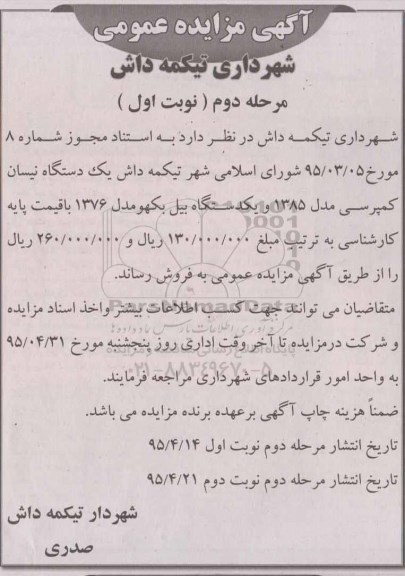 آگهی مزایده عمومی
شهرداری تیکمه داش
مرحله دوم ( نوبت اول )
شهرداری تیکمه داش در نظر دارد به استناد مجوز شماره ۸
مورخ ۹۵/۰۳/۰۵ شورای اسلامی شهر تیکمه داش یک دستگاه نیسان
کمپرسی مدل ۱۳۸۵ و یکدستگاه بیل بکهو مدل ۱۳۷۶ باقیمت پایه
کارشناسی به ترتیب مبلغ ۱۳۰/۰۰۰/۰۰۰ ریال و ۲۶۰/۰۰۰/۰۰۰ ریال
را از طریق آگهی مزایده عمومی به فروش رساند.
متقاضیان می توانند جهت کسب اطلاعات بیشتر واخذ اسناد مزایده
و شرکت درمزایده تا آخر وقت اداری روز پنجشنبه مورخ ۹۵/۰۴/۳۱
به واحد امور قراردادهای شهرداری مراجعه فرمایند.
ضمناً هزینه چاپ آگهی برعهده برنده مزایده می باشد.
تاریخ انتشار مرحله دوم نوبت اول ۹۵/۴/۱۴
تاریخ انتشار مرحله دوم نوبت دوم ۹۵/۴/۲۱
شهردار تیکمه داش
صدری
ParsNamadData
۰۲۱-۸۸۳۴۹۶۷۰-۵